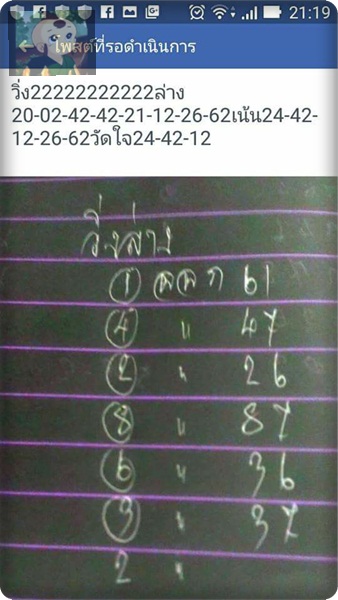 21:19
โพสต์ที่รอดำเนินการ
วิ่ง22222222222ล่าง
20-02-42-42-21-12-26-62เน้น24-42-
12-26-62วัดใจ24-42-12
วิ่งล่าง
1 ออก 61
4 " 47
2 " 26
8 " 87
6 " 36
3 " 37
2 "